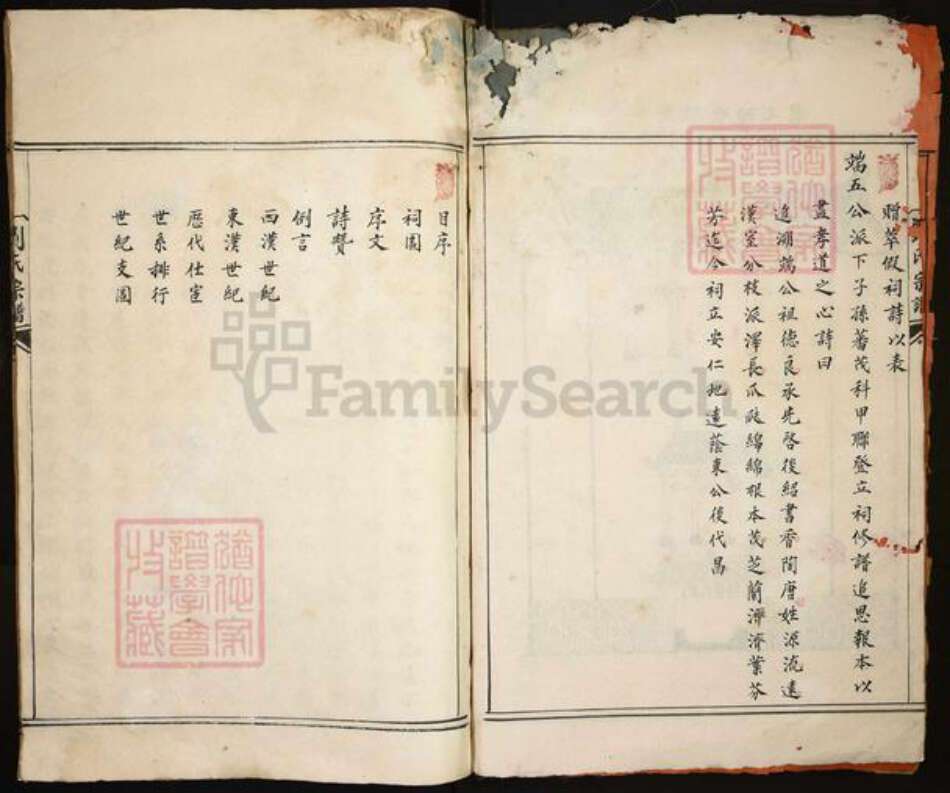 贈萃假祠詩以表
端五公派下子孫蕃茂科甲聯登立祠修譜追思報本以
盡孝道之心詩曰
追溯端公祖德良承先啓後紹書香陶唐姓源流遠
漢室分枝派澤長瓜瓞綿綿根本茂芝蘭濟濟葉芬
芳迄今祠立安仁地遠蔭東公後代昌
目序
祠圖
序文
詩贊
例言
西漢世紀
東漢世紀
歷代仕宦
世系排行
世紀支圖
劉氏宗譜
FamilySearch